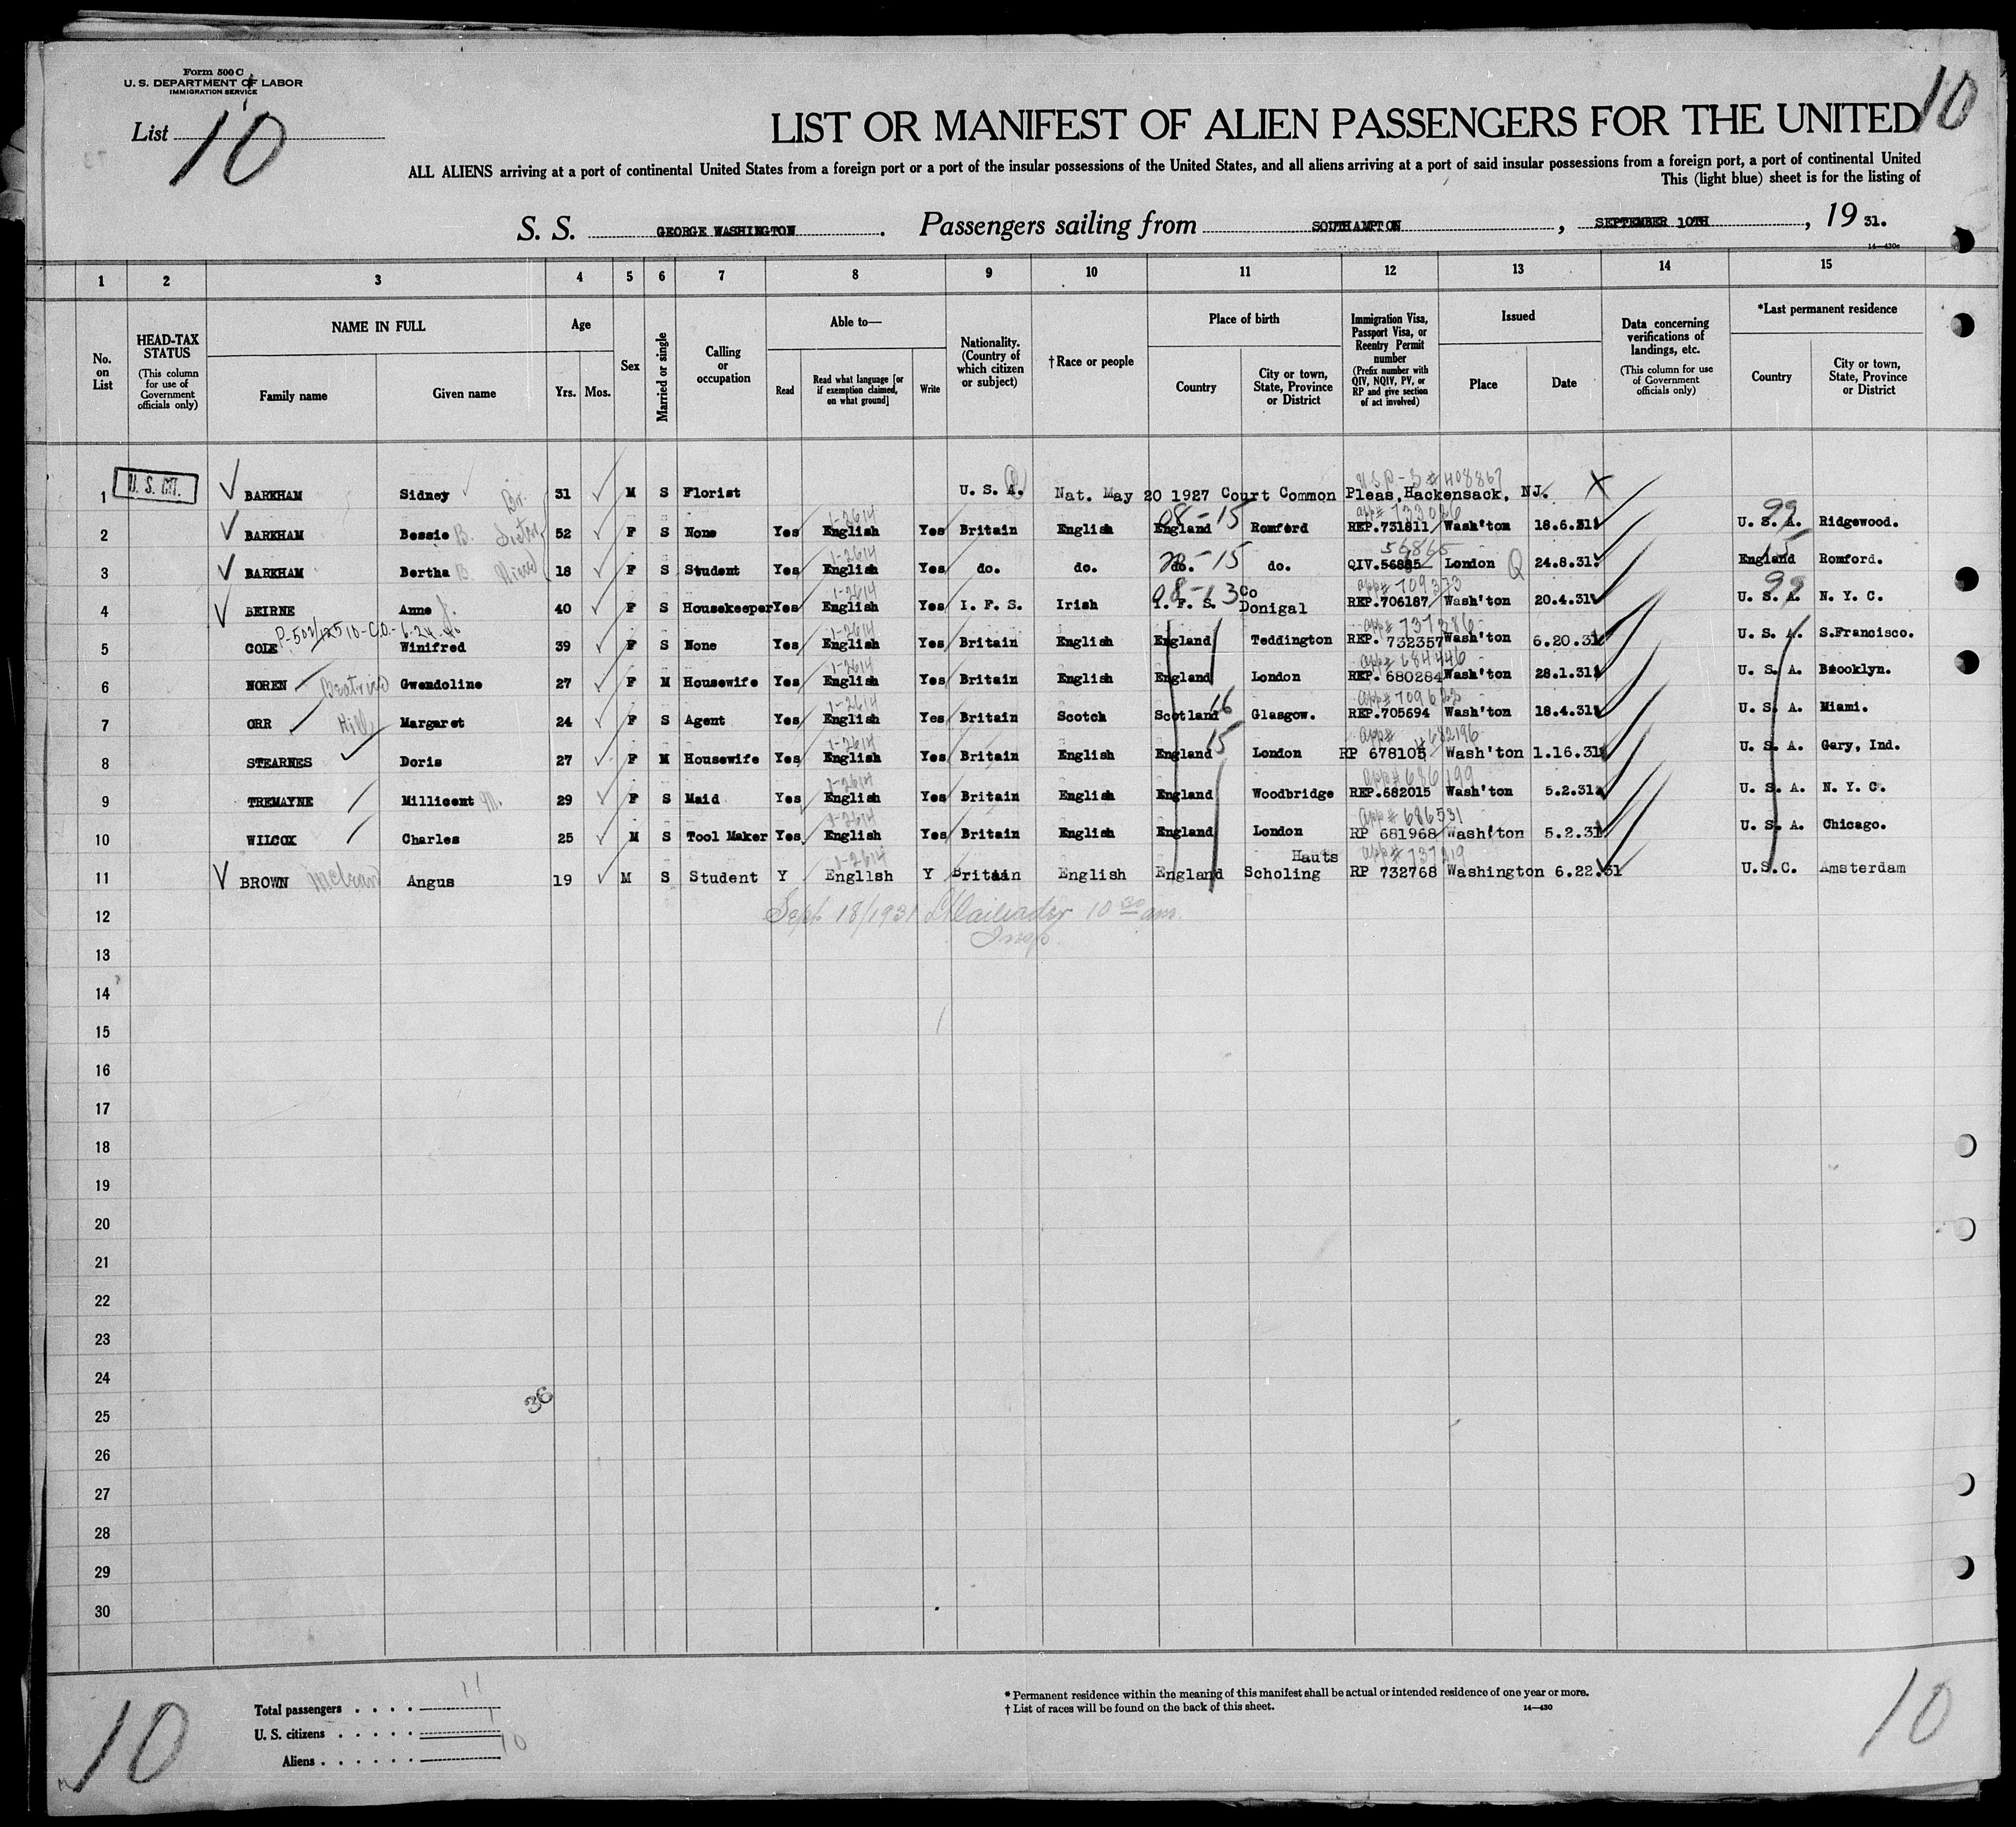 Form 500 C
U. S. DEPARTMENT OF LABOR
IMMIGRATION SERVICE
List 10
10
LIST OR MANIFEST OF ALIEN PASSENGERS FOR THE UNITED
ALL ALIENS arriving at a port of continental United States from a foreign port or a port of the insular possessions of the United States, and all aliens arriving at a port of said insular possessions from a foreign port, a port of continental United
This (light blue) sheet is for the listing of
S. S. GEORGE WASHINGTON. Passengers sailing from SOUTHAMPTON, SEPTEMBER 10TH, 19 31.
14—430c
1 2 3 4 5 6 7 8 9 10 11 12 13 14 15
No. on List
HEAD-TAX STATUS (This column for use of Government officials only)
NAME IN FULL
Family name
Given name
Age
Yrs. Mos.
Sex
Married or single
Calling or occupation
Able to—
Read
Read what language [or if exemption claimed, on what ground]
Write
Nationality. (Country of which citizen or subject)
† Race or people
Place of birth
Country
City or town, State, Province or District
Immigration Visa, Passport Visa, or Reentry Permit number (Prefix number with QIV, NQIV, PV, or RP and give section of act involved)
Issued
Place
Date
Data concerning verifications of landings, etc. (This column for use of Government officials only)
*Last permanent residence
Country
City or town, State, Province or District
USP-S # 408867
1 U. S. CIT. BARKHAM Sidney Br. 31 M S Florist U. S. A. Nat. May 20 1927 Court Common Pleas, Hackensack, NJ. X
1-2614 08-15 app# 733086 99
2 BARKHAM Bessie B. Sister 52 F S None Yes English Yes Britain English England Romford REP.731811 Wash'ton 18.6.31 U. S. A. Ridgewood.
1-2614 56865 15
3 BARKHAM Bertha B. Niece 18 F S Student Yes English Yes do. do. do. -15 do. QIV.56885 London Q 24.8.31. England Romford.
1-2614 08-13 app# 709373 99
4 BEIRNE Anne J. 40 F S Housekeeper Yes English Yes I. F. S. Irish I. F. S. Co Donigal REP.706187 Wash'ton 20.4.31 U. S. A. N. Y. C.
1-2614 app# 737386
5 COLE Winifred 39 F S None Yes English Yes Britain English England Teddington REP. 732357 Wash'ton 6.20.31 U. S. A. S.Francisco.
1-2614 app# 684446
6 NOREN Beatrice Gwendoline 27 F M Housewife Yes English Yes Britain English England London REP. 680284 Wash'ton 28.1.31 U. S. A. Brooklyn.
1-2614 16
7 ORR Hill Margaret 24 F S Agent Yes English Yes Britain Scotch Scotland Glasgow. REP.705694 Wash'ton 18.4.31 U. S. A. Miami.
1-2614 15 app# 682196
8 STEARNES Doris 27 F M Housewife Yes English Yes Britain English England London RP 678105 Wash'ton 1.16.31 U. S. A. Gary, Ind.
1-2614 app# 686199
9 TREMAYNE Millicent M. 29 F S Maid Yes English Yes Britain English England Woodbridge REP.682015 Wash'ton 5.2.31 U. S. A. N. Y. C.
1-2614 app# 686531
10 WILCOX Charles 25 M S Tool Maker Yes English Yes Britain English England London RP 681968 Wash'ton 5.2.31 U. S. A. Chicago.
1-2614 Hauts app# 737219
11 BROWN McLean Angus 19 M S Student Y English Y Britain English England Scholing RP 732768 Washington 6.22.31 U.S.C. Amsterdam
12 Sept 18/1931 10 30 am.
Insp.
13
14
15
16
17
18
19
20
21
22
23
24
36
25
26
27
28
29
30
10
Total passengers . . . . 11
U. S. citizens . . . . . 1
Aliens . . . . . . 10
* Permanent residence within the meaning of this manifest shall be actual or intended residence of one year or more.
† List of races will be found on the back of this sheet.
14—430
10